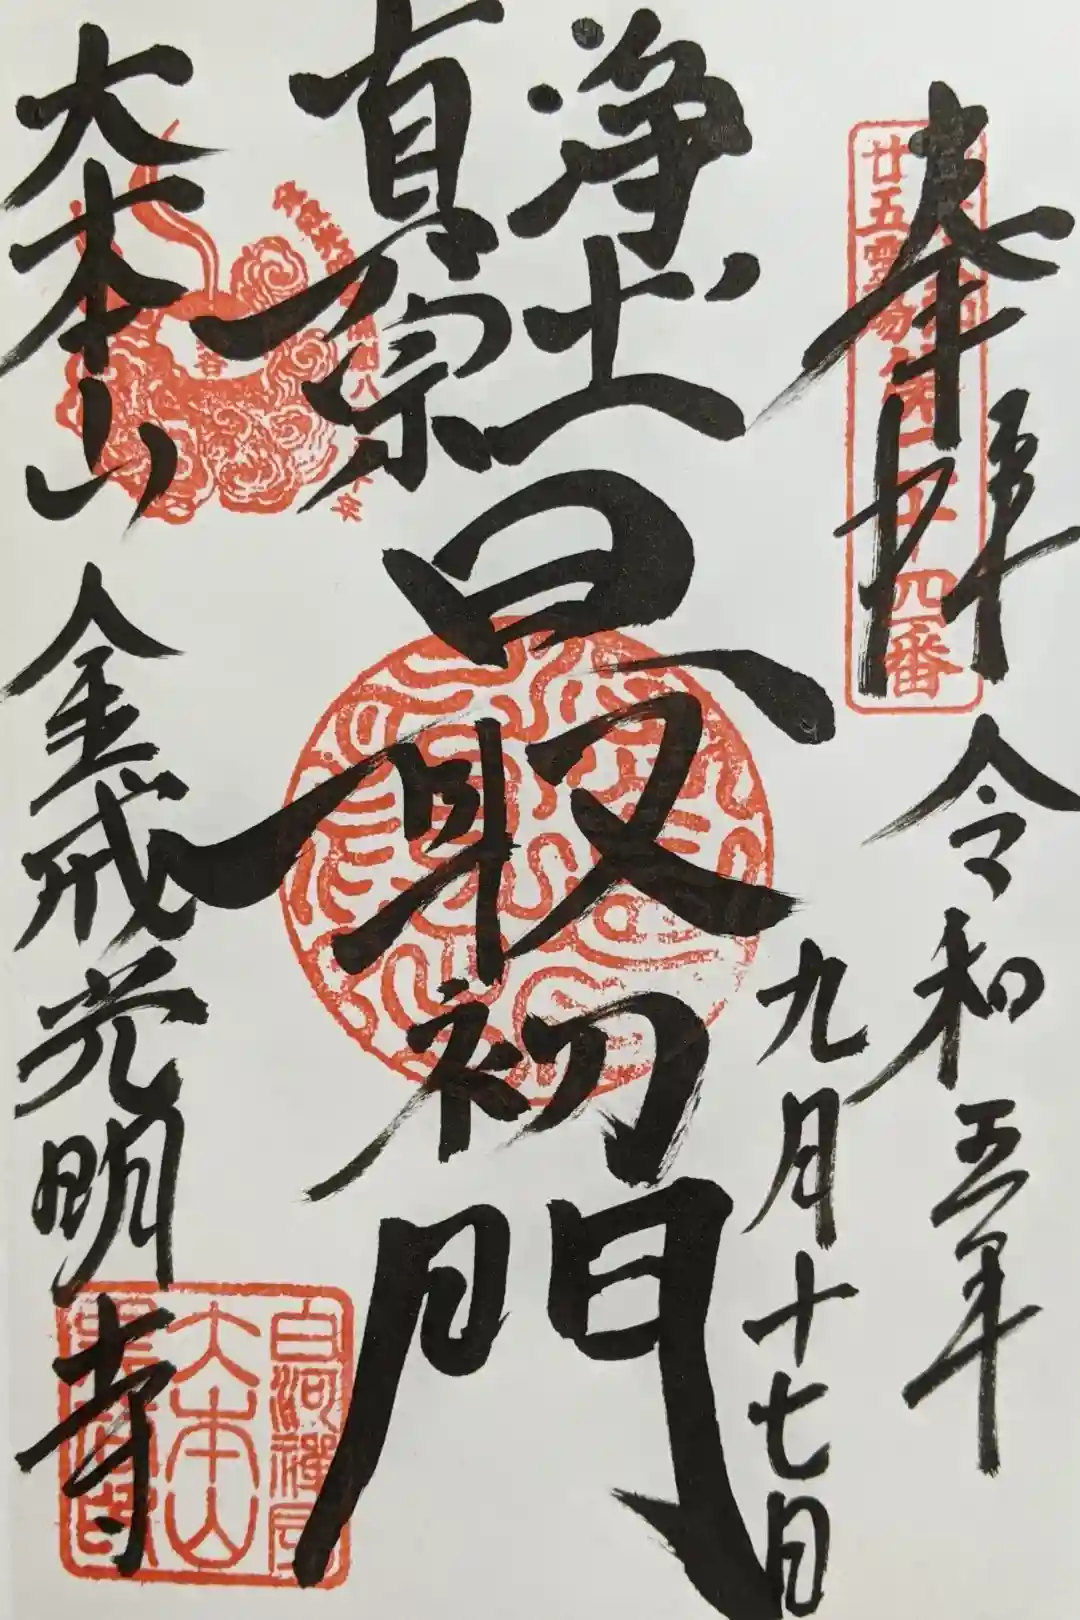 奉拝
令和五年
九月十七日
浄土
真宗
最初門
大本山
金戒光明寺
廿五霊場第二十四番
白河禅房
大本山